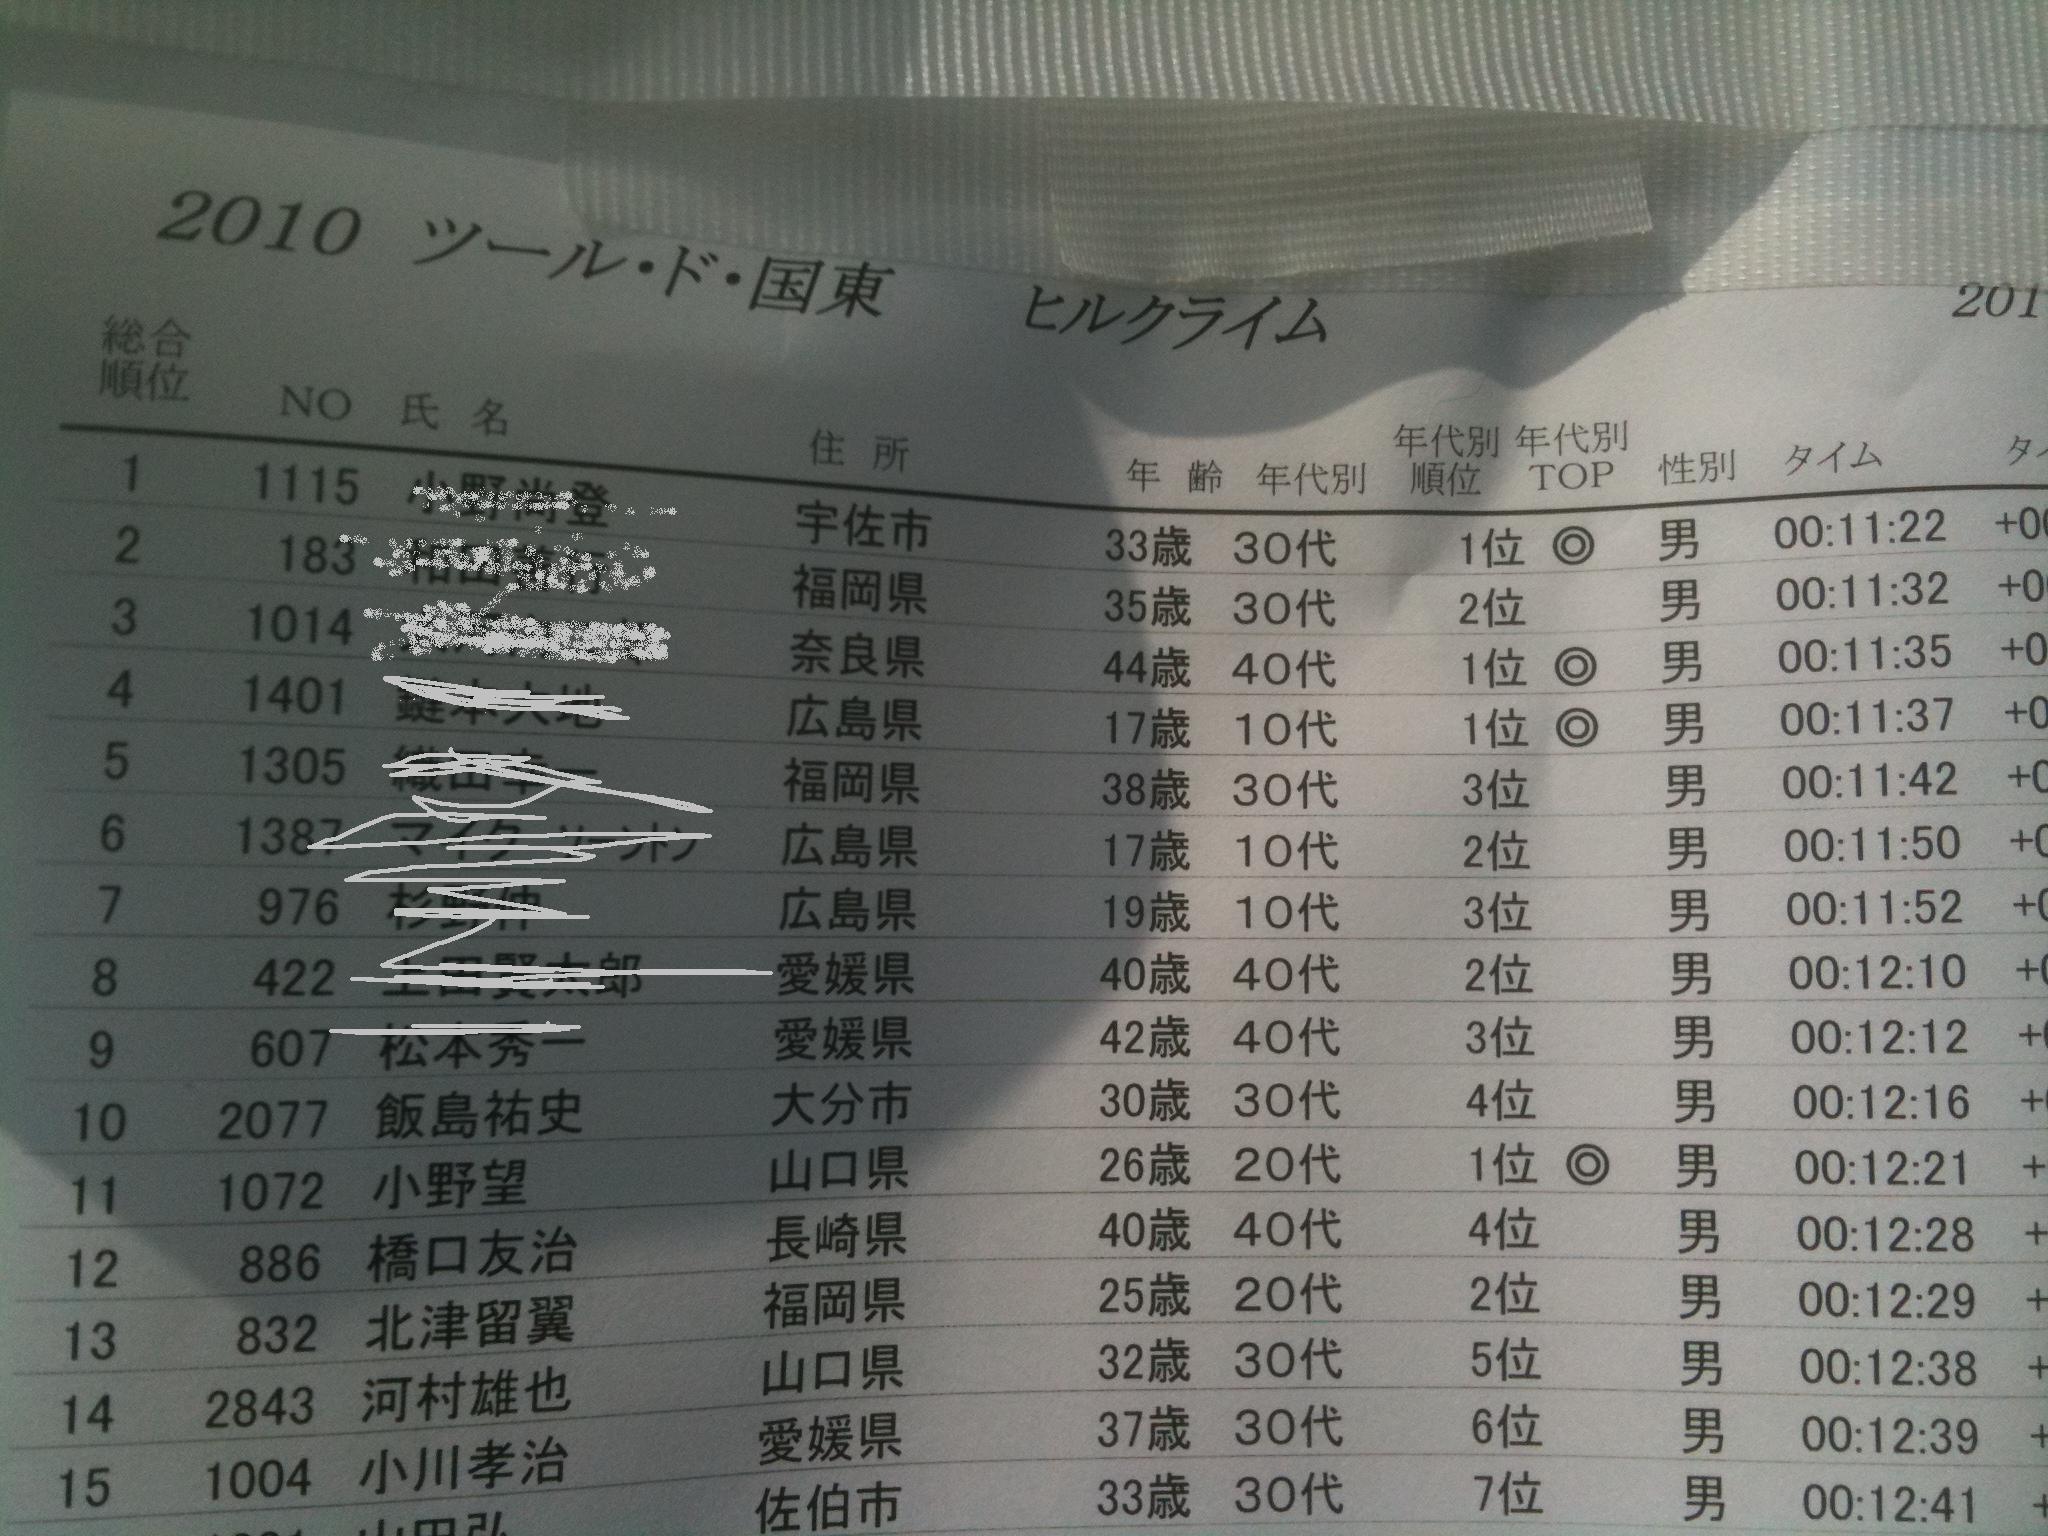 2010 ツール・ド・国東 ヒルクライム 201
総合順位 NO 氏 名 住 所 年 齢 年代別 年代別順位 年代別TOP 性別 タイム
1 1115 宇佐市 33歳 30代 1位 ◎ 男 00:11:22 +00
2 183 福岡県 35歳 30代 2位 男 00:11:32 +00
3 1014 奈良県 44歳 40代 1位 ◎ 男 00:11:35 +0
4 1401 広島県 17歳 10代 1位 ◎ 男 00:11:37 +0
5 1305 福岡県 38歳 30代 3位 男 00:11:42 +0
6 1387 広島県 17歳 10代 2位 男 00:11:50 +0
7 976 広島県 19歳 10代 3位 男 00:11:52 +0
8 422 愛媛県 40歳 40代 2位 男 00:12:10 +0
9 607 松本秀一 愛媛県 42歳 40代 3位 男 00:12:12 +
10 2077 飯島祐史 大分市 30歳 30代 4位 男 00:12:16 +
11 1072 小野望 山口県 26歳 20代 1位 ◎ 男 00:12:21 +
12 886 橋口友治 長崎県 40歳 40代 4位 男 00:12:28 +
13 832 北津留翼 福岡県 25歳 20代 2位 男 00:12:29 +
14 2843 河村雄也 山口県 32歳 30代 5位 男 00:12:38 +
15 1004 小川孝治 愛媛県 37歳 30代 6位 男 00:12:39 +
佐伯市 33歳 30代 7位 男 00:12:41 +